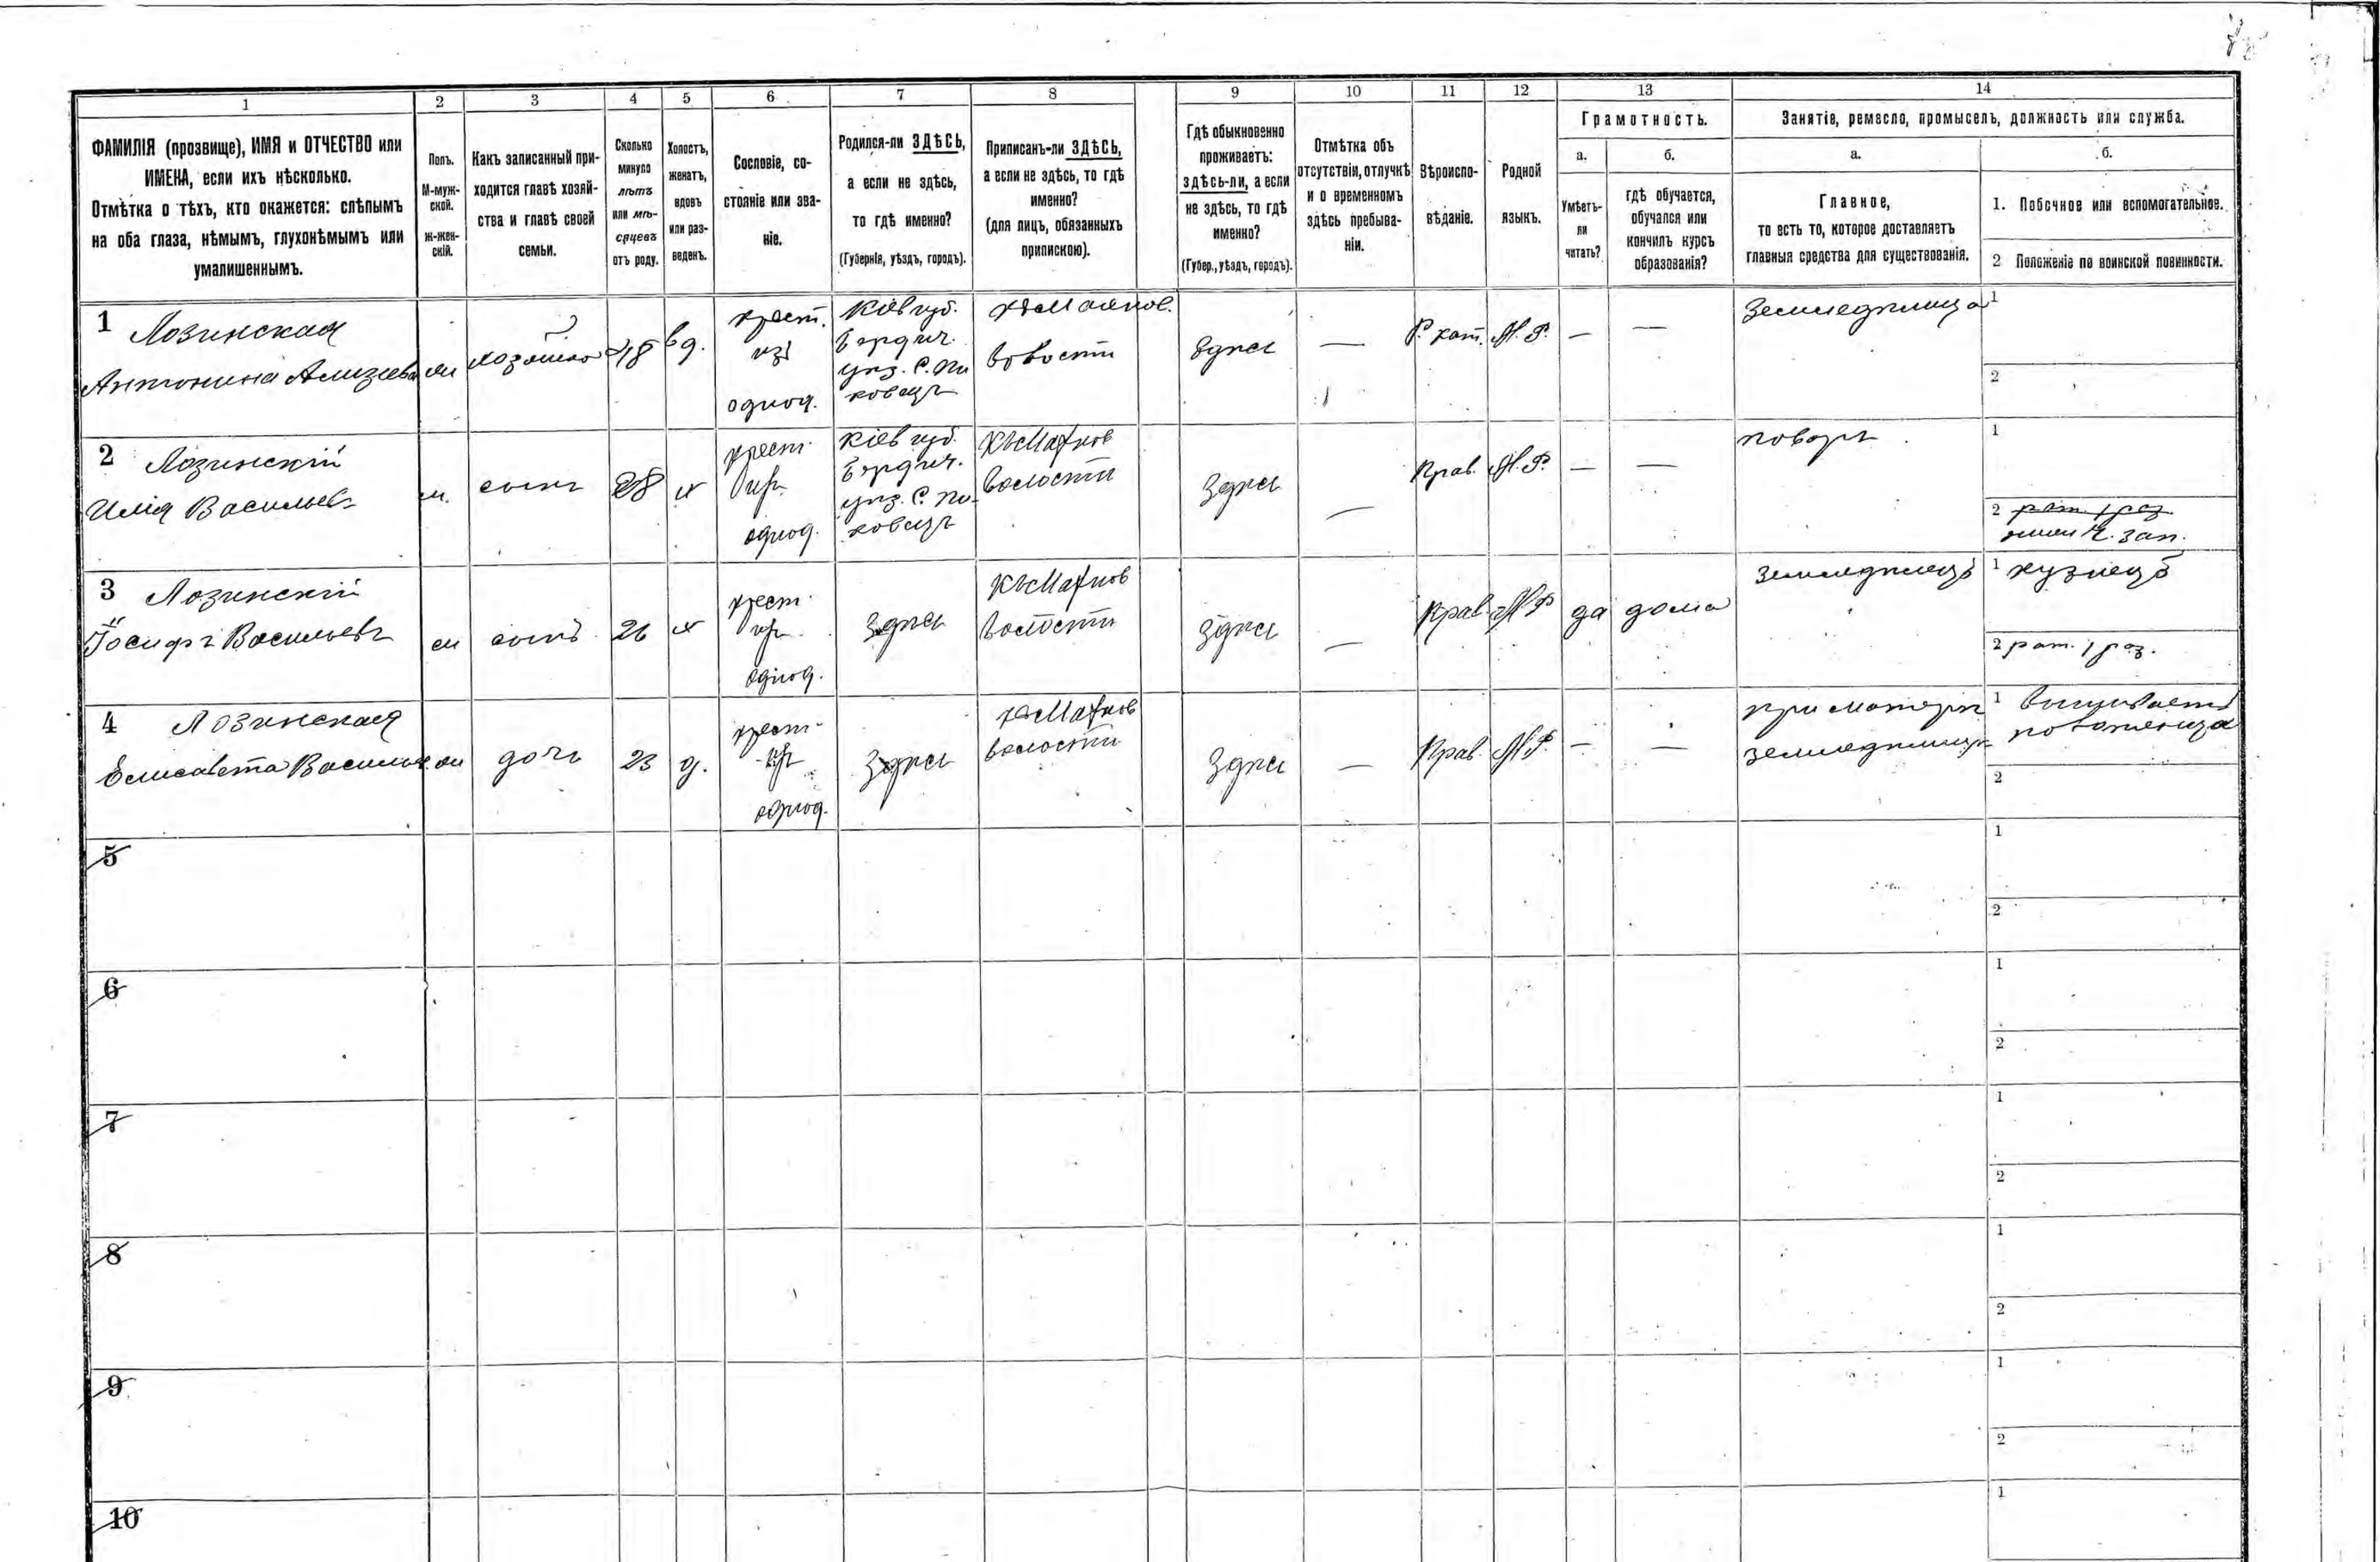 1 2 3 4 5 6 7 8 9 10 11 12 13 14
ФАМИЛІЯ (прозвище), ИМЯ и ОТЧЕСТВО или
ИМЕНА, если ихъ нѣсколько.
Отмѣтка о тѣхъ, кто окажется: слѣпымъ
на оба глаза, нѣмымъ, глухонѣмымъ или
умалишеннымъ.
Полъ.
М-муж-
ской.
ж-жен-
скій.
Какъ записанный при-
ходится главѣ хозяй-
ства и главѣ своей
семьи.
Сколько
минуло
лѣтъ
или мѣ-
сяцевъ
отъ роду.
Холостъ,
женатъ,
вдовъ
или раз-
веденъ.
Сословіе, со-
стояніе или зва-
ніе.
Родился-ли ЗДѢСЬ,
а если не здѣсь,
то гдѣ именно?
(Губернія, уѣздъ, городъ).
Приписанъ-ли ЗДѢСЬ,
а если не здѣсь, то гдѣ
именно?
(для лицъ, обязанныхъ
припискою).
Гдѣ обыкновенно
проживаетъ:
здѣсь-ли, а если
не здѣсь, то гдѣ
именно?
(Губер., уѣздъ, городъ).
Отмѣтка объ
отсутствіи, отлучкѣ
и о временномъ
здѣсь пребыва-
ніи.
Вѣроиспо-
вѣданіе.
Родной
языкъ.
Грамотность.
а.
Умѣетъ-
ли
читать?
б.
гдѣ обучается,
обучался или
кончилъ курсъ
образованія?
Занятіе, ремесло, промыселъ, должность или служба.
а.
Главное,
то есть то, которое доставляетъ
главныя средства для существованія.
б.
1. Побочное или вспомогательное.
2 Положеніе по воинской повинности.
1 Лозинская
Антонина
48
вд.
крест.
изъ
однод.
Кіев губ.
Бердич.
уѣз. С. Пи
ковецъ
волости
Здѣсь
—
Р. кат.
М. Р.
—
—
Земледѣлица
1
2
2 Лозинскій
Илія Васильев
м.
сынъ
28
х
крест.
изъ
однод.
Кіев губ.
Бердич.
уѣз. С. Пи
ковецъ
къ Махнов
волости
Здѣсь
—
Прав.
М. Р.
—
—
поваръ
1
2 рат. 1 раз
3 Лозинскій
Іосифъ Васильевъ
м
сынъ
26
х
крест.
изъ
однод.
Здѣсь
къ Махнов
волости
Здѣсь
—
Прав.
М Р
да
дома
Земледѣлецъ
1 кузнецъ
2 рат. 1 раз.
4 Лозинская
Елисавета
дочь
23
д.
крест.
изъ
однод.
Здѣсь
къ Махнов
волости
Здѣсь
—
Прав.
М. Р.
—
—
при матери
земледѣлица
1 вышиваетъ
полотенца
2
5
1
2
6
1
2
7
1
2
8
1
2
9
1
2
10
1